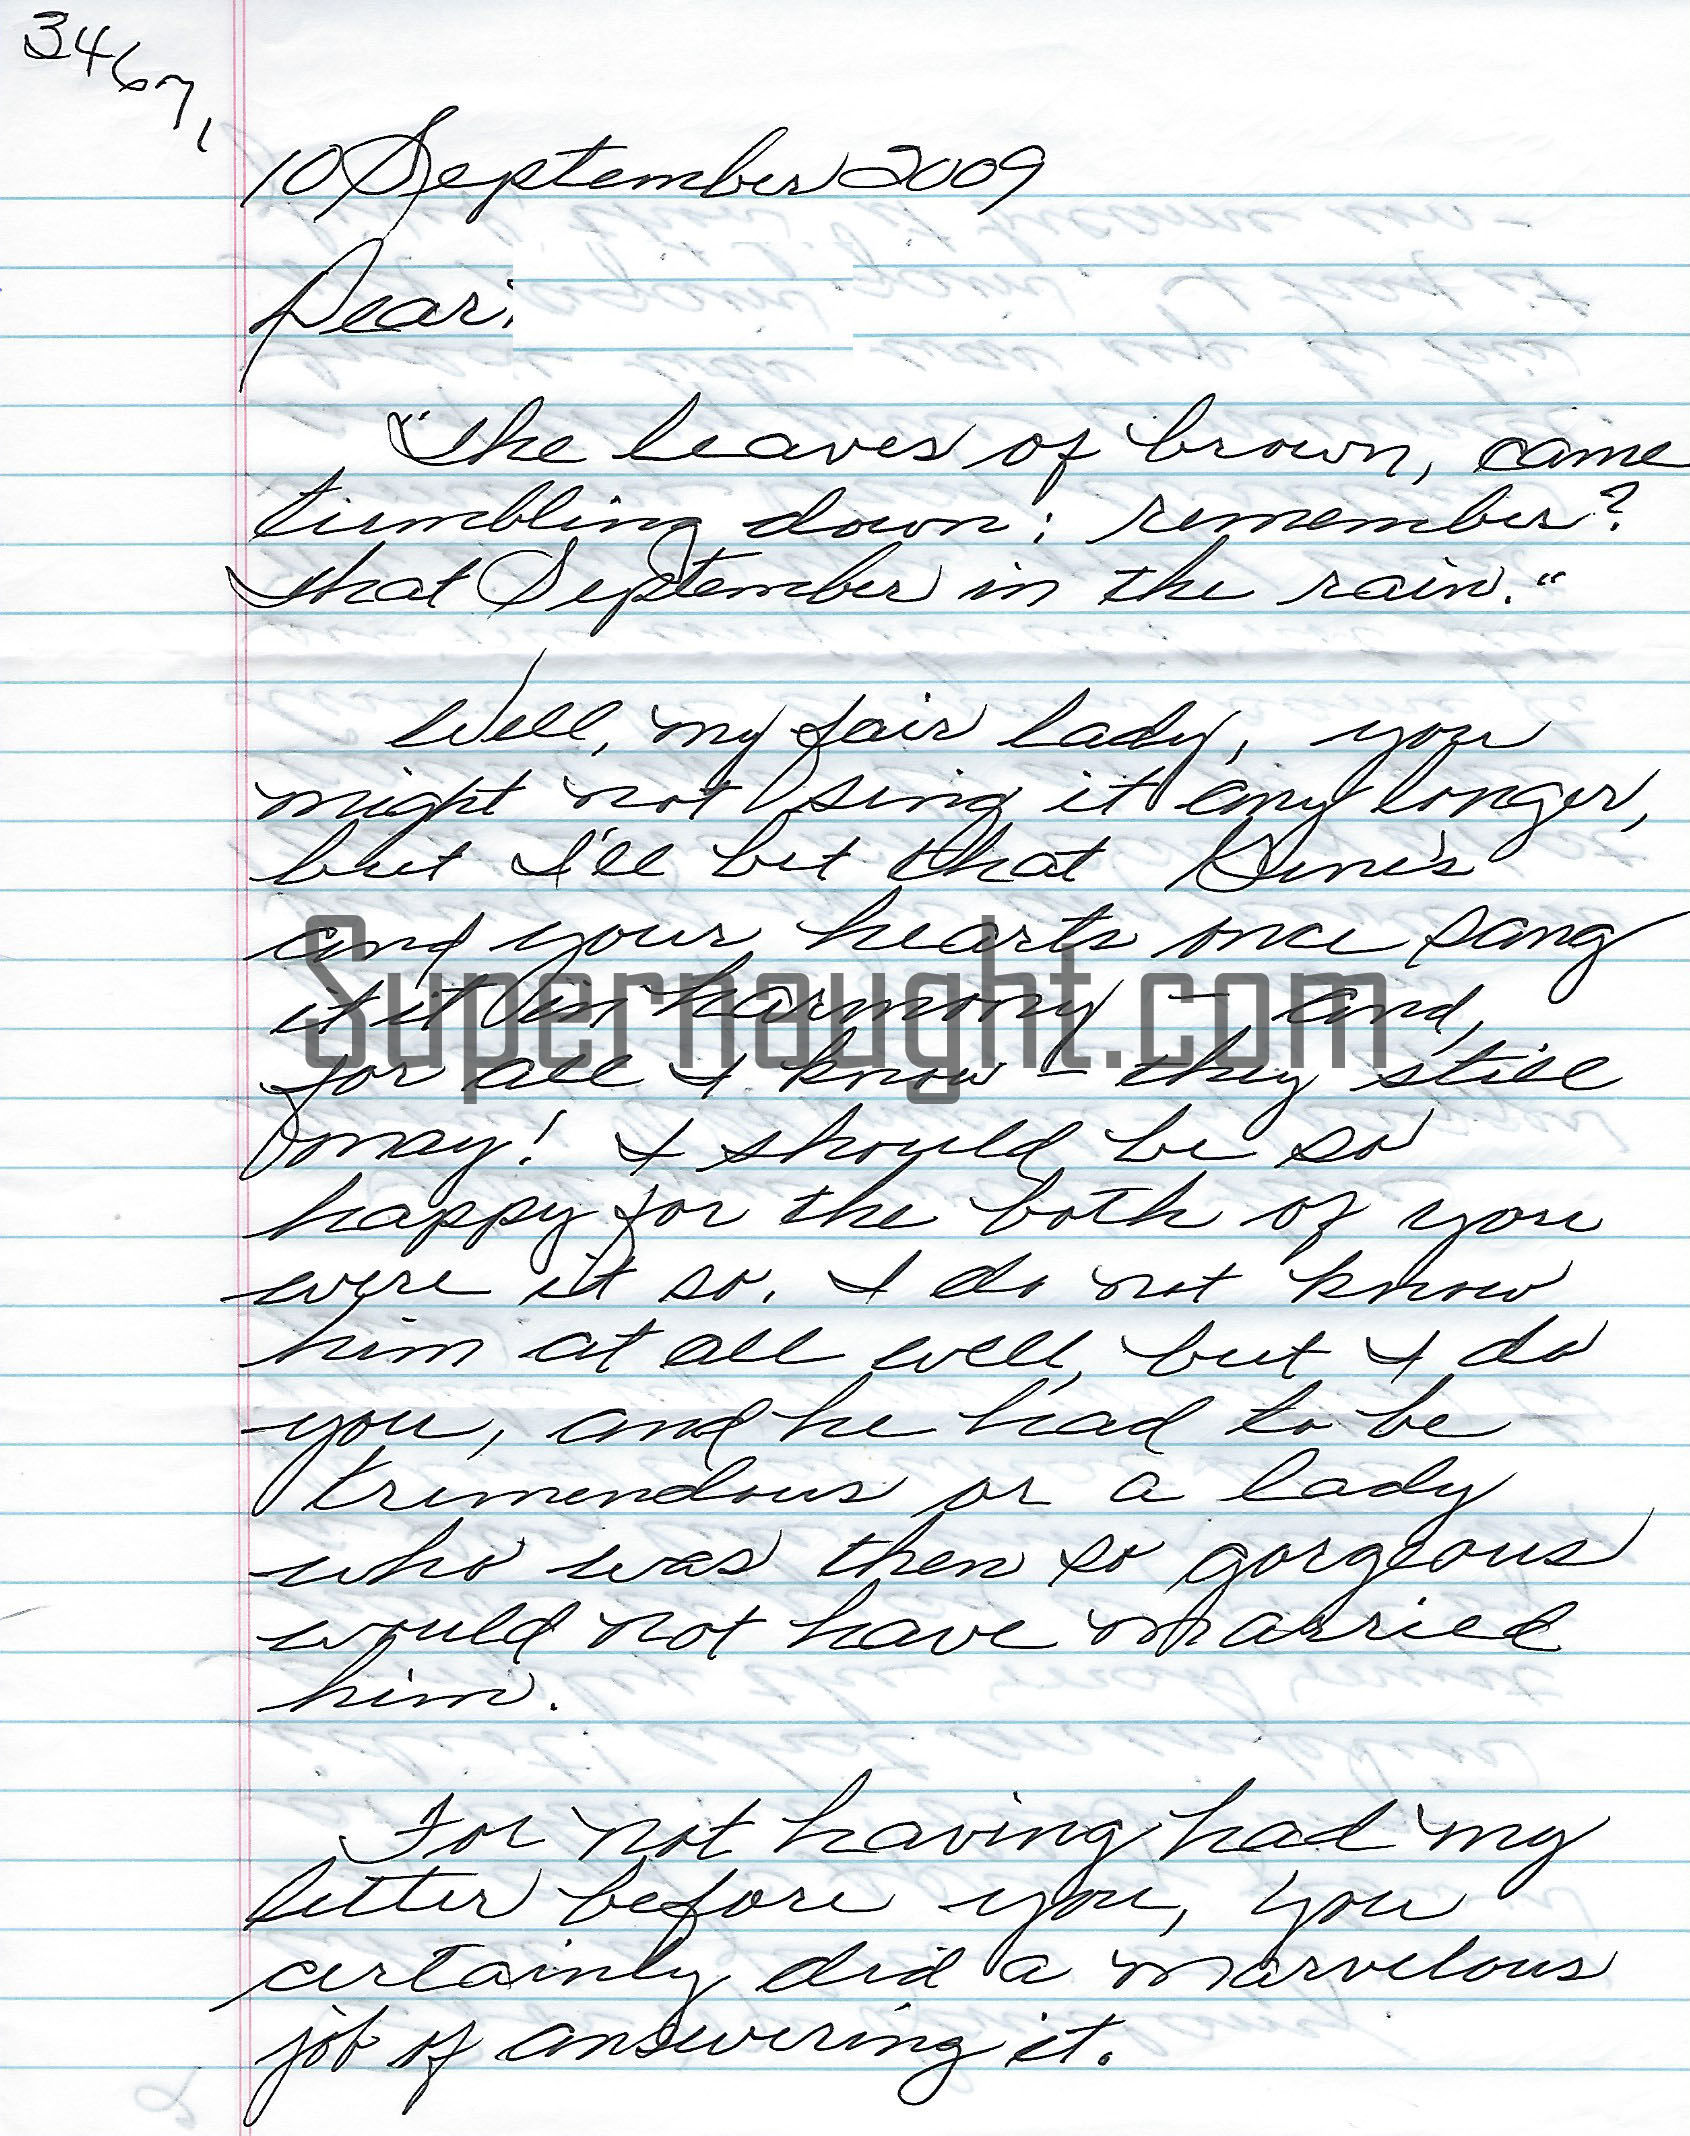 3467,
10 September 2009
Dear
"The leaves of brown, came
tumbling down: remember?
That September in the rain."
Well, my fair lady, you
might not sing it any longer,
but I'll bet that Gene's
and your hearts once sang
it it in harmony - and,
for all I know - they still
may! I should be so
happy for the both of you
were it so. I do not know
him at all well, but I do
you, and he had to be
tremendous or a lady
who was then so gorgeous
would not have married
him.
For not having had my
letter before you, you
certainly did a marvelous
job of answering it.
Supernaught.com